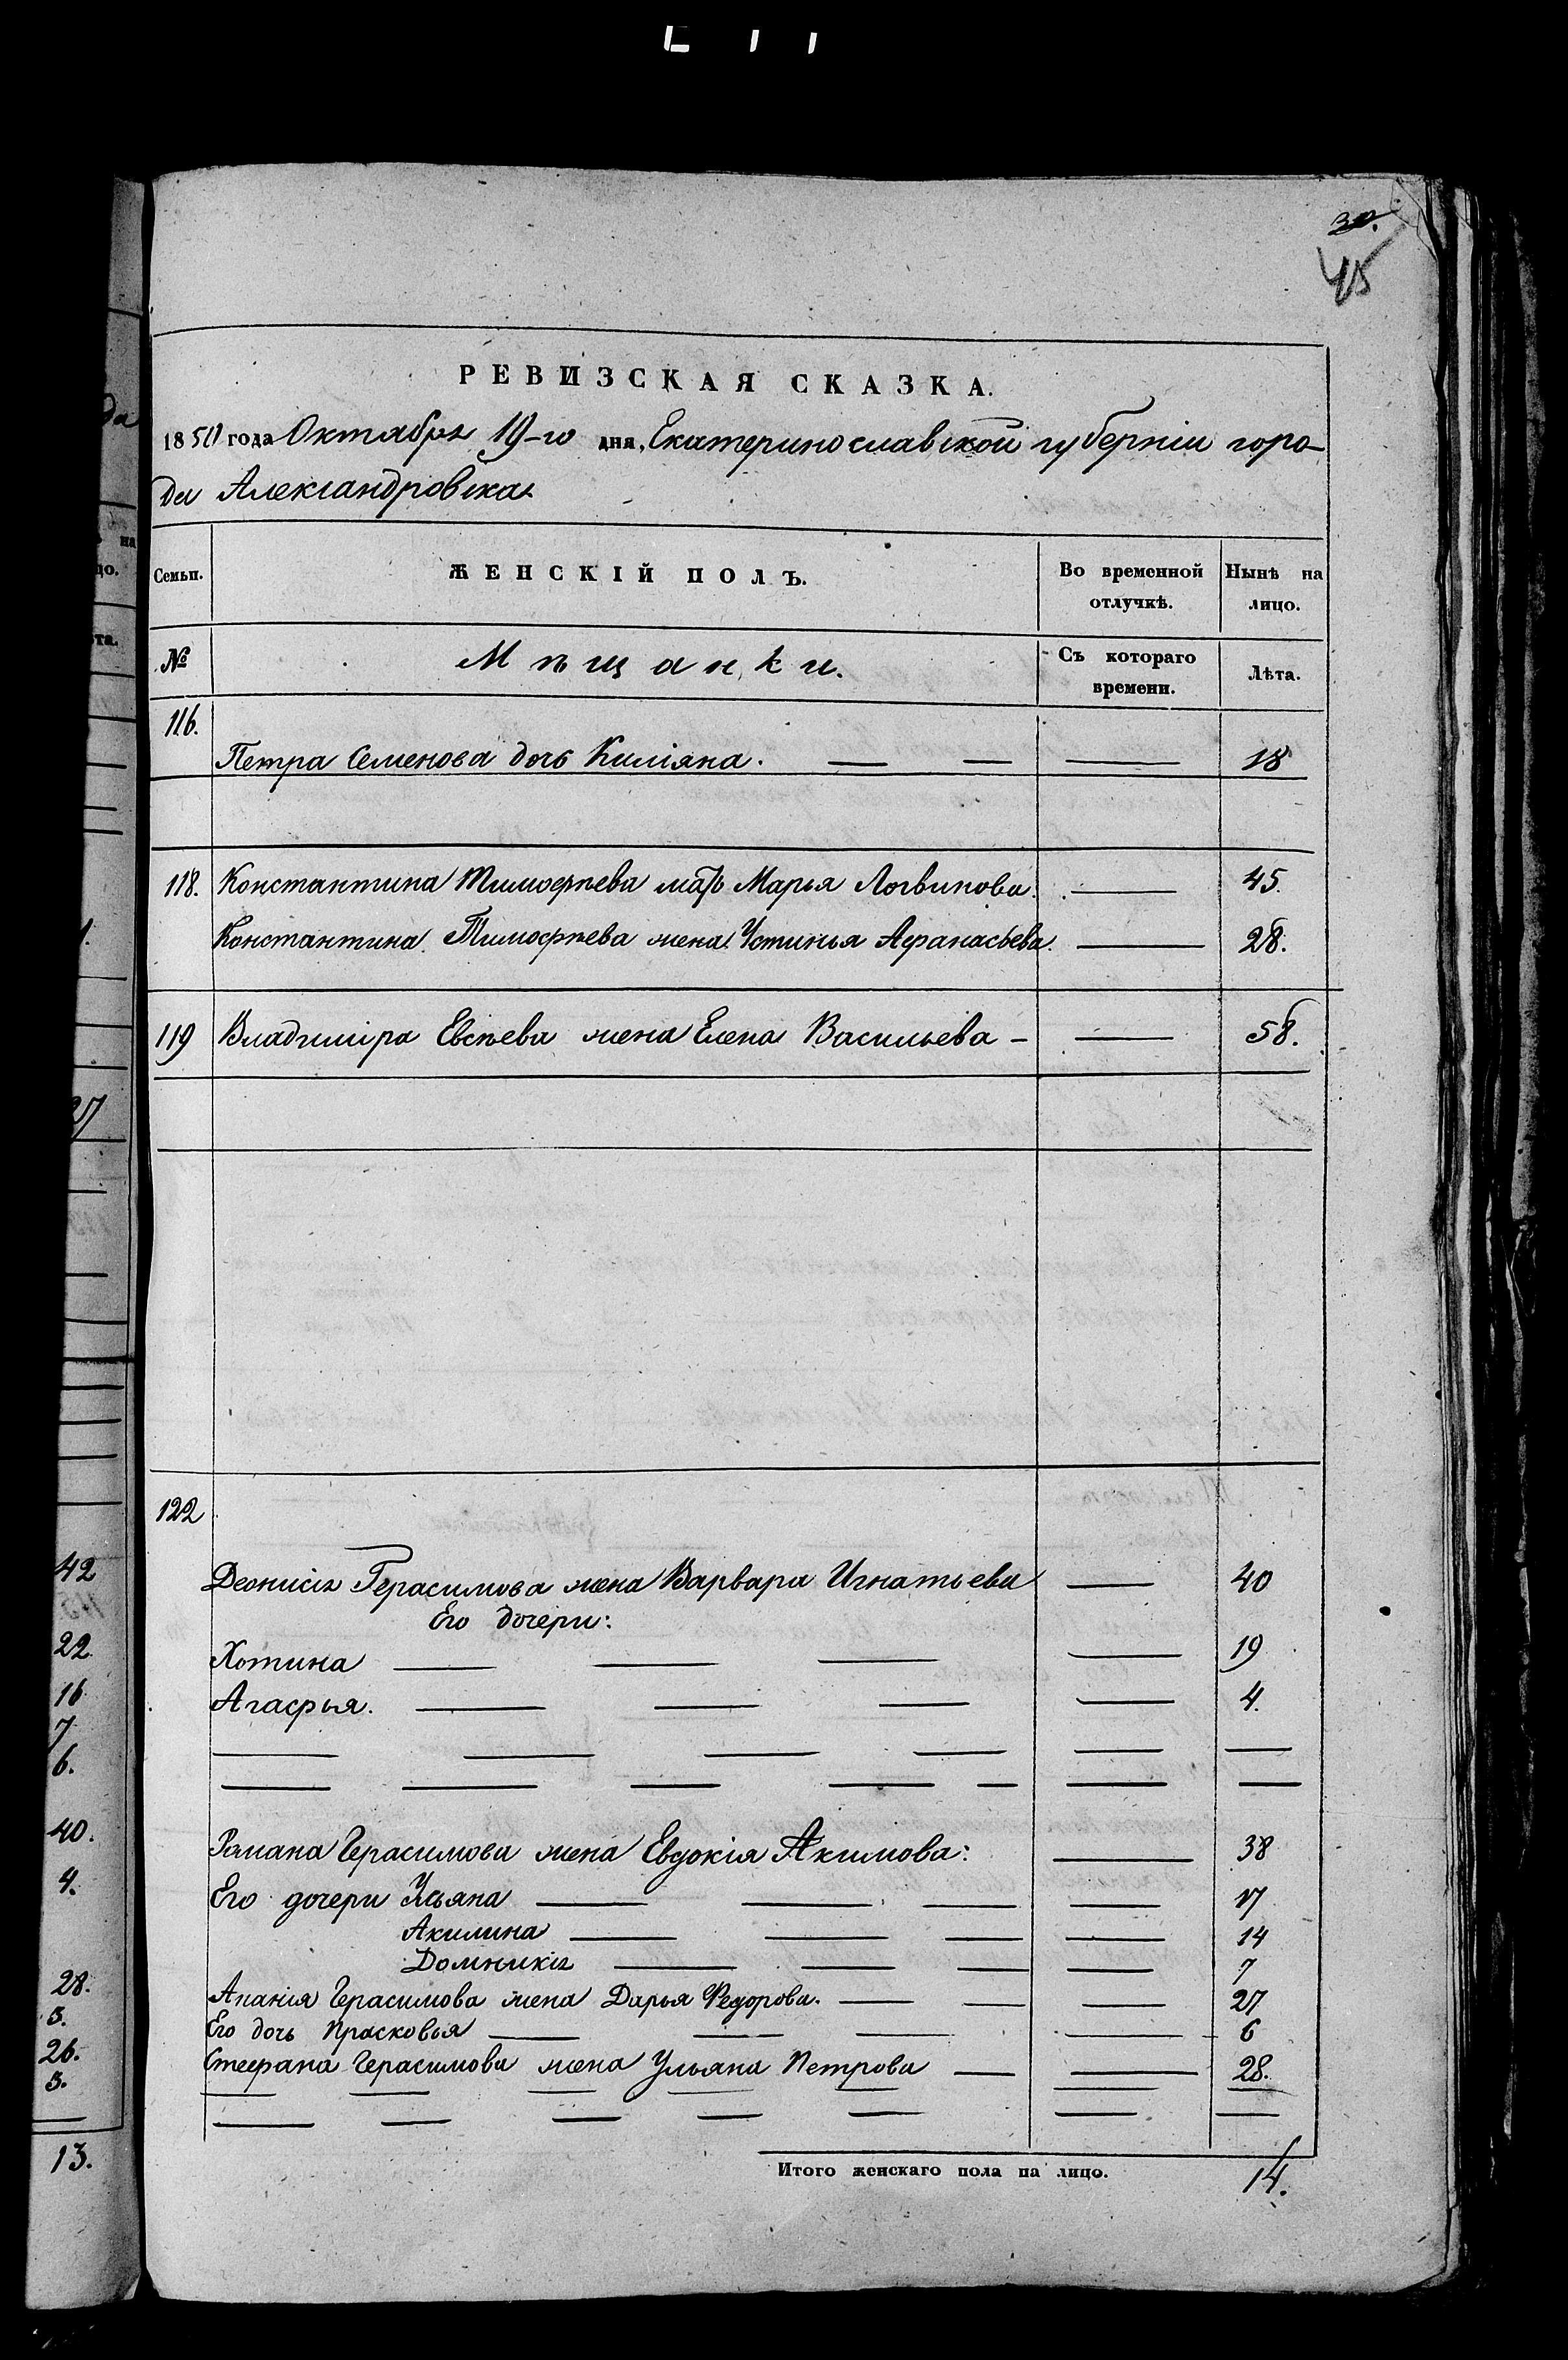 30.
45
РЕВИЗСКАЯ СКАЗКА.
1850 года Октября 19-го дня, Екатеринославской губерніи горо-
да Александровска
Семьи. ЖЕНСКІЙ ПОЛЪ. Во временной отлучкѣ. Нынѣ на лицо.
№ Мѣщанки. Съ котораго времени. Лѣта.
116.
Петра Семенова дочь Киліяна. 18
118. Константина Тимофѣева мать Марья Логвинова. 45.
Константина Тимофѣева жена Устинья Афанасьева. 28.
119 Владиміра Евсѣева жена Елена Васильева - 58.
122
Деонисія Герасимова жена Варвара Игнатьева 40
Его дочери:
Хотина 19
Агафья. 4.
Романа Герасимова жена Евдокія Акимова: 38
Его дочери Ульяна 17
Акилина 14
Домникія 7
Ананія Герасимова жена Дарья Федорова. 27
Его дочь Прасковья 6
Стефана Герасимова жена Ульяна Петрова 28.
Итого женскаго пола на лицо. 14.
да
на
цо.
та.
27
42
22
16
7
6.
40.
4.
28.
3.
26.
3.
13.